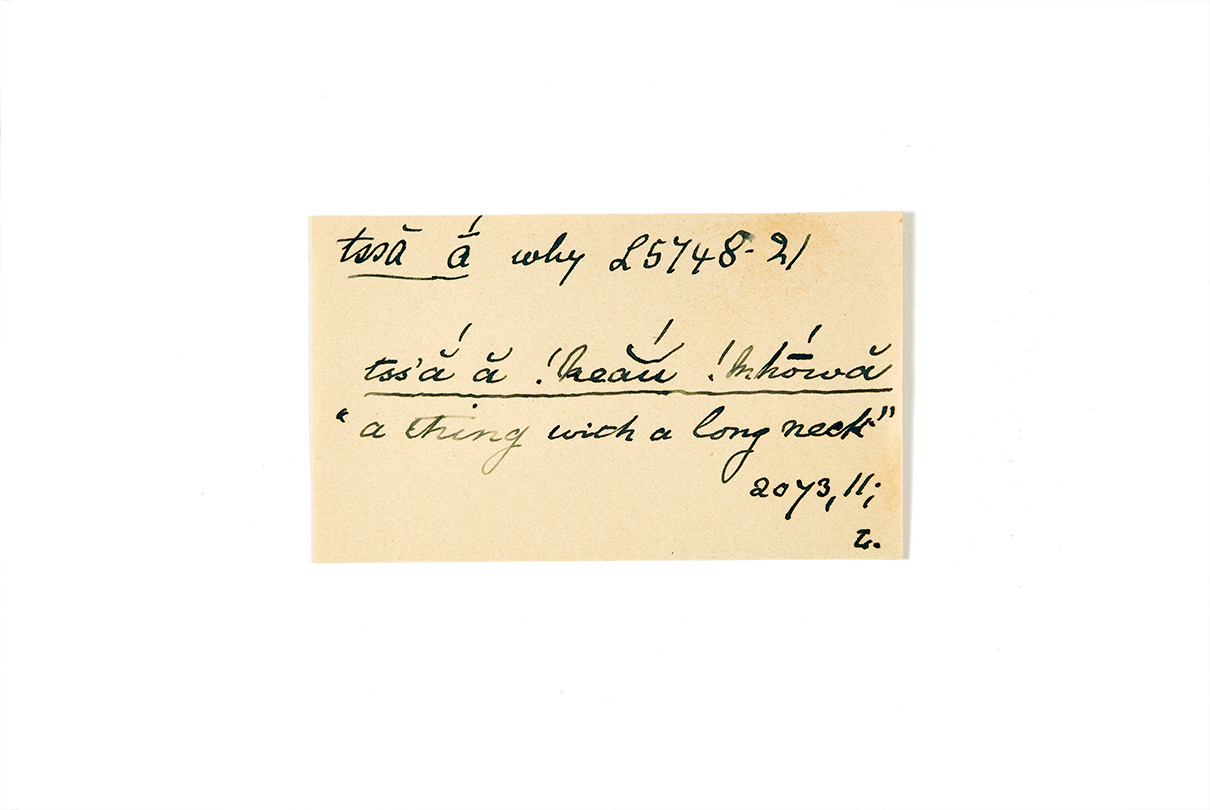 tssā ā́ why L5748-21
tss'ắ ă !keắŭ !khṓwă
"a thing with a long neck"
2073,11;
t.